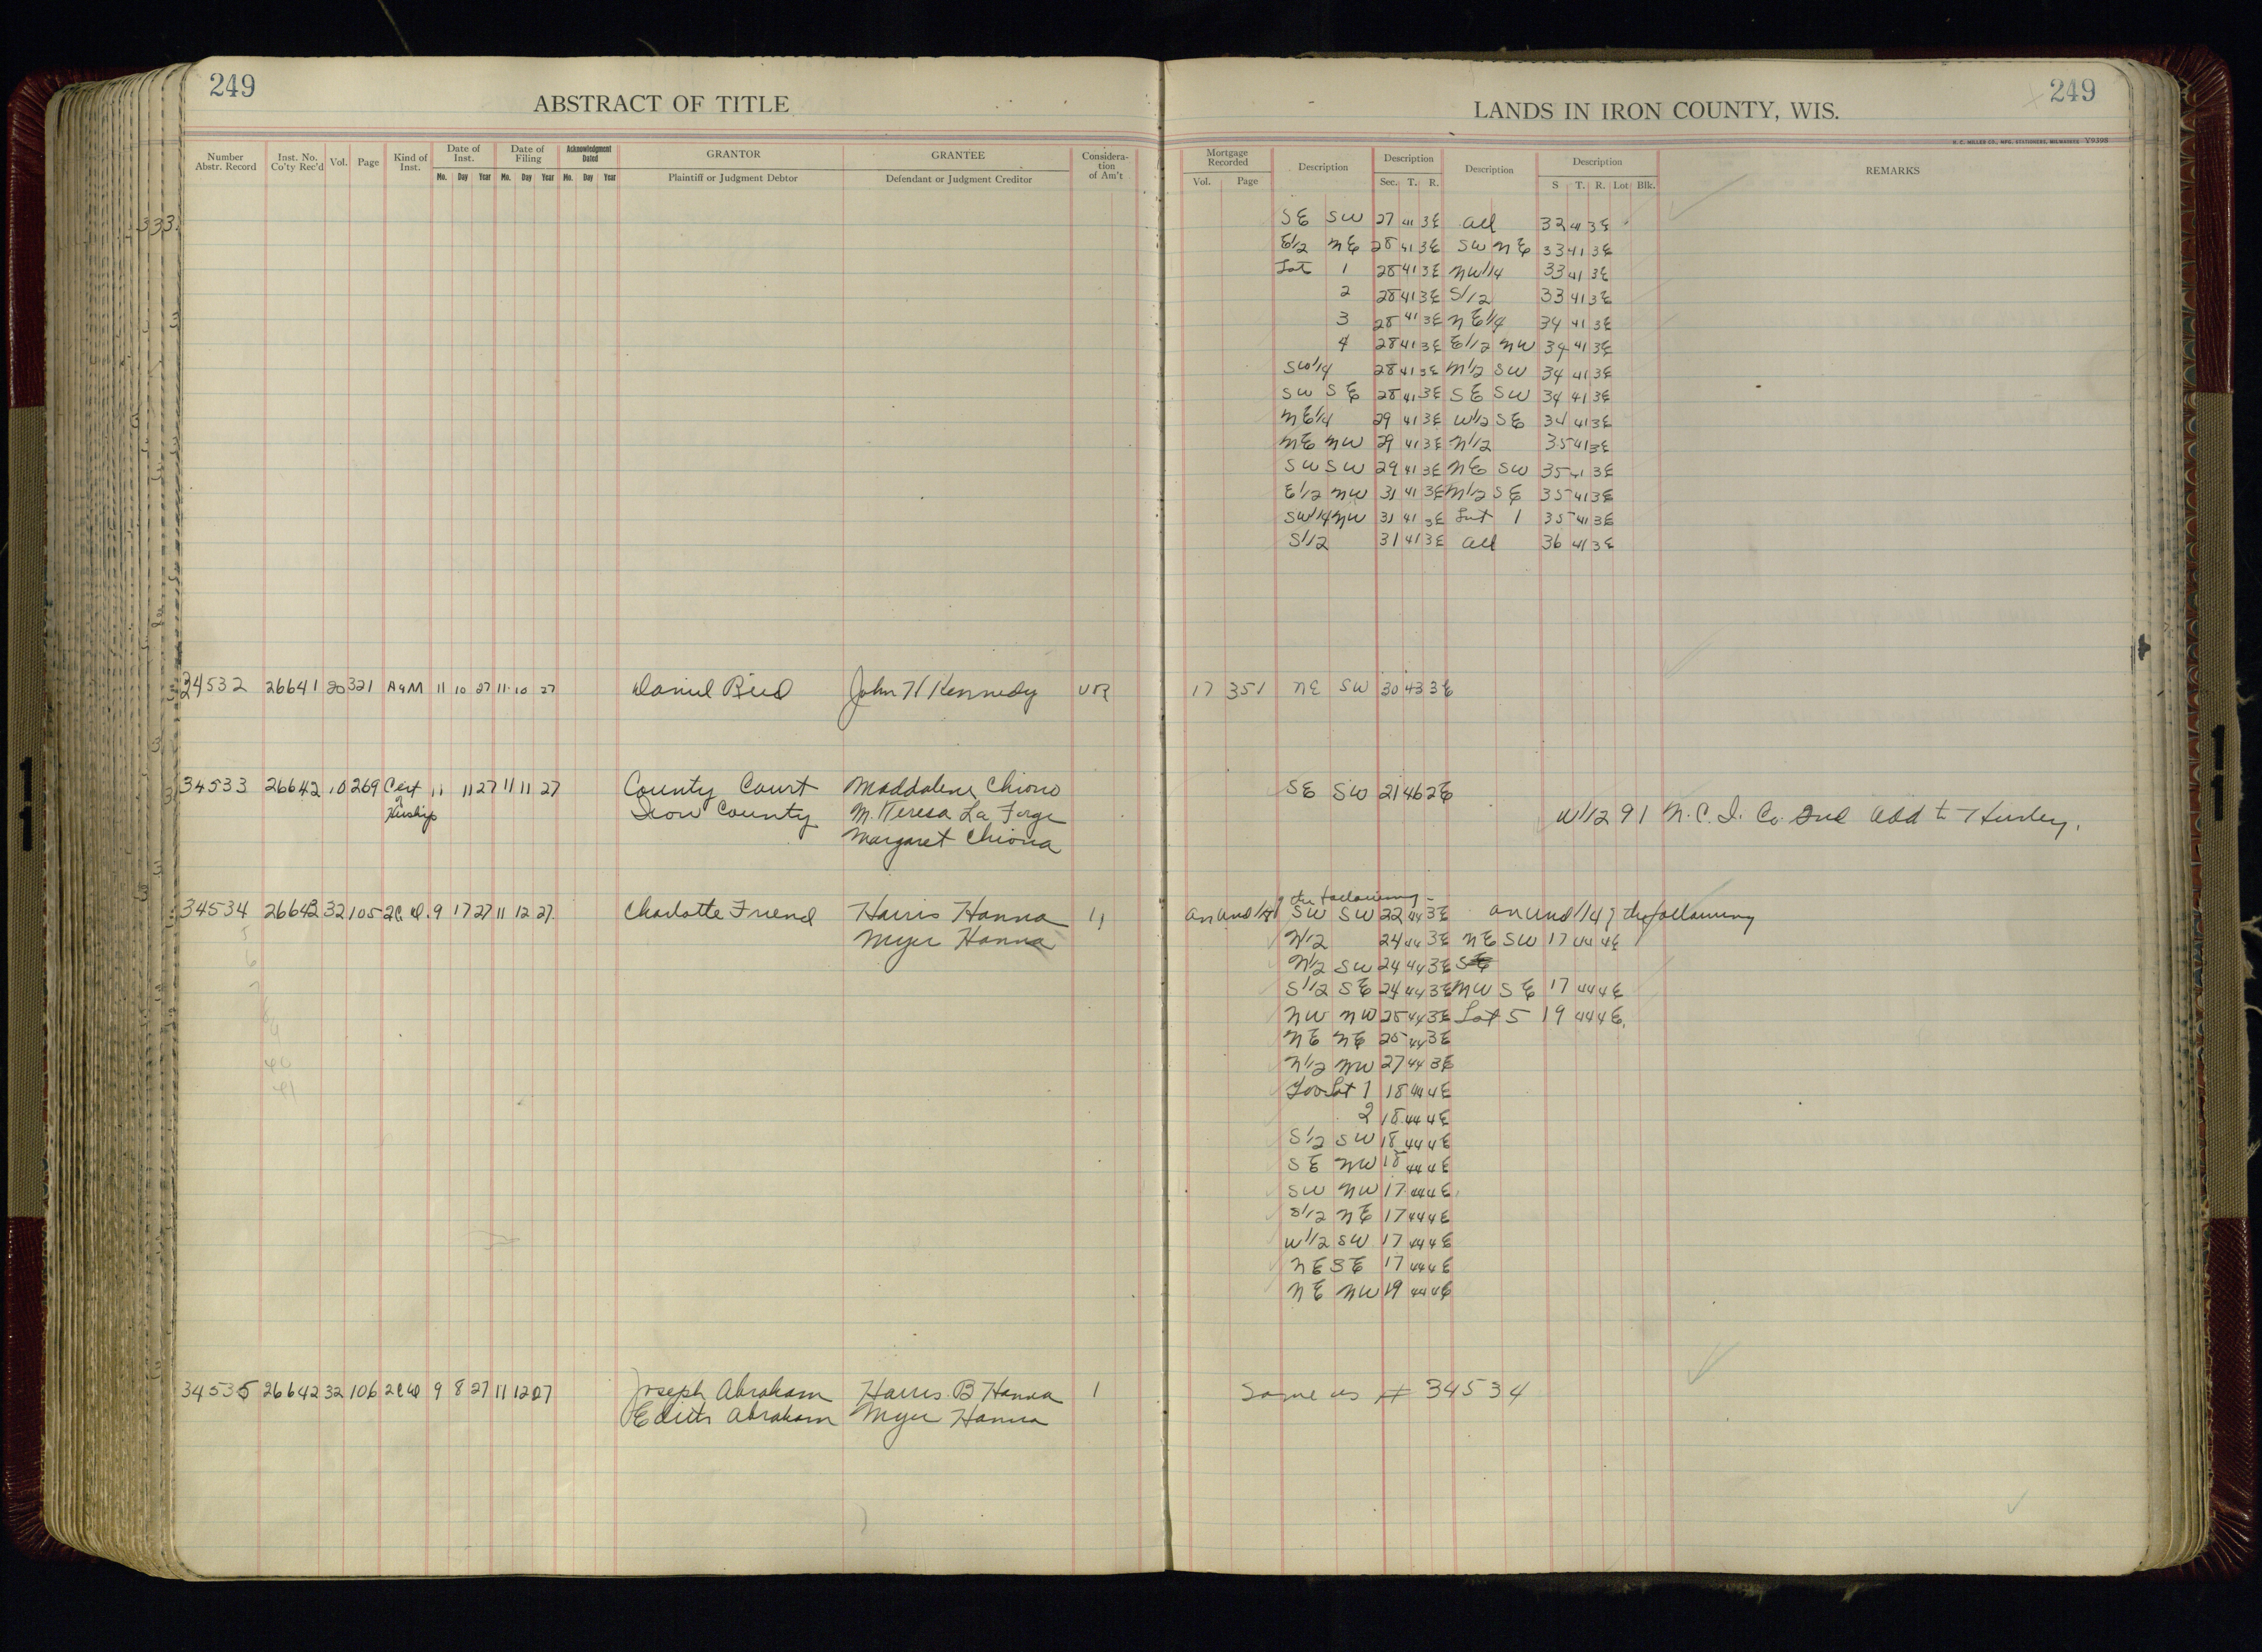 249
ABSTRACT OF TITLE
Number Abstr. Record
Inst. No. Co'ty Rec'd
Vol.
Page
Kind of Inst.
Date of Inst.
Mo. Day Year
Date of Filing
Mo. Day Year
Acknowledgment Dated
Mo. Day Year
GRANTOR
Plaintiff or Judgment Debtor
GRANTEE
Defendant or Judgment Creditor
Considera-
tion
of Am't
34532 26641 20 321 A of M 11 10 27 11 10 27 Daniel Reid John H Kennedy VOR
34533 26642 10 269 Cert 11 11 27 11 11 27 County Court Maddalena Chiono
of Heirship Iron County M. Teresa La Forge
Margaret Chiono
34534 26643 32 105 2C.D. 9 17 27 11 12 27 Charlotte Friend Harris Hanna 1
5 Myer Hanna
6
7
40
41
34535 26642 32 106 2CD 9 8 27 11 12 27 Joseph Abraham Harris B Hanna 1
Edith Abraham Myer Hanna
249
LANDS IN IRON COUNTY, WIS.
H. C. MILLER CO., MFG. STATIONERS, MILWAUKEE V9398
Mortgage Recorded
Vol. Page
Description
Description
Sec. T. R.
Description
Description
S T. R. Lot Blk.
REMARKS
SE SW 27 41 3E All 32 41 3E
E1/2 NE 28 41 3E SW NE 33 41 3E
Lot 1 28 41 3E NW1/4 33 41 3E
2 28 41 3E S1/2 33 41 3E
3 28 41 3E NE1/4 34 41 3E
4 28 41 3E E1/2 NW 34 41 3E
SW1/4 28 41 3E N1/2 SW 34 41 3E
SW SE 28 41 3E SE SW 34 41 3E
NE1/4 29 41 3E W1/2 SE 34 41 3E
NE NW 29 41 3E N1/2 35 41 3E
SW SW 29 41 3E NE SW 35 41 3E
E1/2 NW 31 41 3E N1/2 SE 35 41 3E
SW1/4 NW 31 41 3E Lot 1 35 41 3E
S1/2 31 41 3E All 36 41 3E
17 351 NE SW 30 43 3E
SE SW 21 46 2E
W1/2 91 N.C.I. Co. 2nd Add to Hurley.
the following
An und 1/4 of SW SW 22 44 3E an und 1/4 of the following
N1/2 24 44 3E NE SW 17 44 4E
N1/2 SW 24 44 3E SE
S1/2 SE 24 44 3E NW SE 17 44 4E
NW NW 25 44 3E Lot 5 19 44 4E.
NE NE 25 44 3E
N1/2 NW 27 44 3E
Gov Lot 1 18 44 4E
2 18 44 4E
S1/2 SW 18 44 4E
SE NW 18 44 4E
SW NW 17 44 4E
S1/2 NE 17 44 4E
W1/2 SW 17 44 4E
NE SE 17 44 4E
NE NW 19 44 4E
Same as # 34534